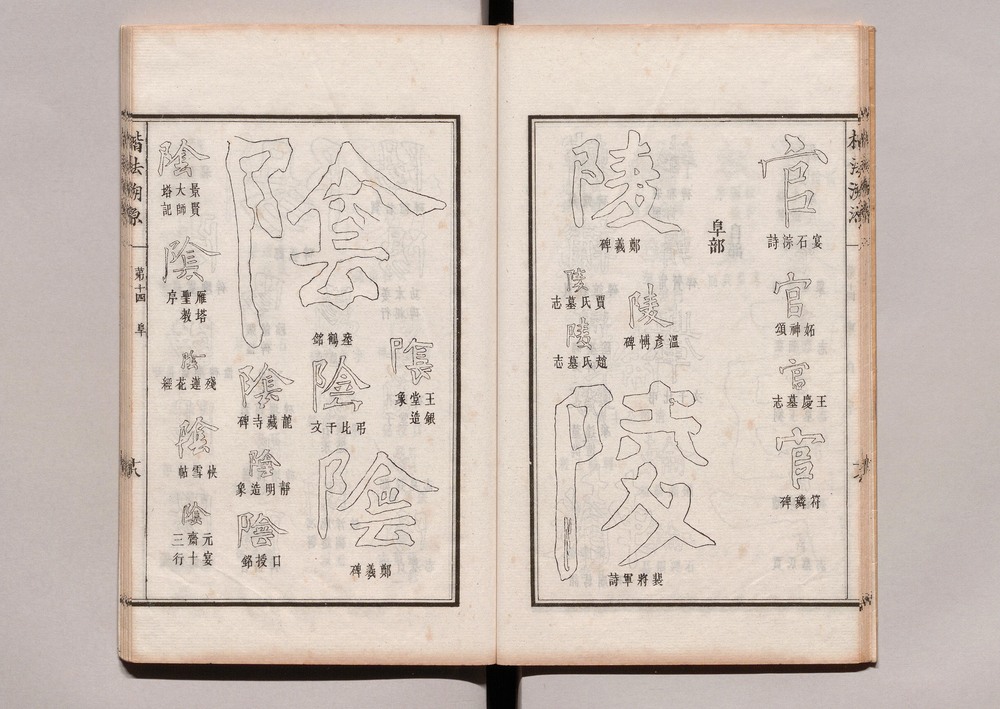 官
宴石淙詩
官
妬神頌
官
王慶墓志
官
符璘碑
阜部
陵
鄭羲碑
陵
溫彥博碑
陵
賈氏墓志
陵
趙氏墓志
陵
裴將軍詩
陰
瘞鶴銘
陰
王銀堂造象
陰
弔比干文
陰
鄭羲碑
陰
龍藏寺碑
陰
靜明造象
陰
口授銘
陰
景賢大師塔記
陰
雁塔聖教序
陰
殘蓮花經
陰
快雪帖
陰
元宴齋十三行
楷法溯原
第十四
阜